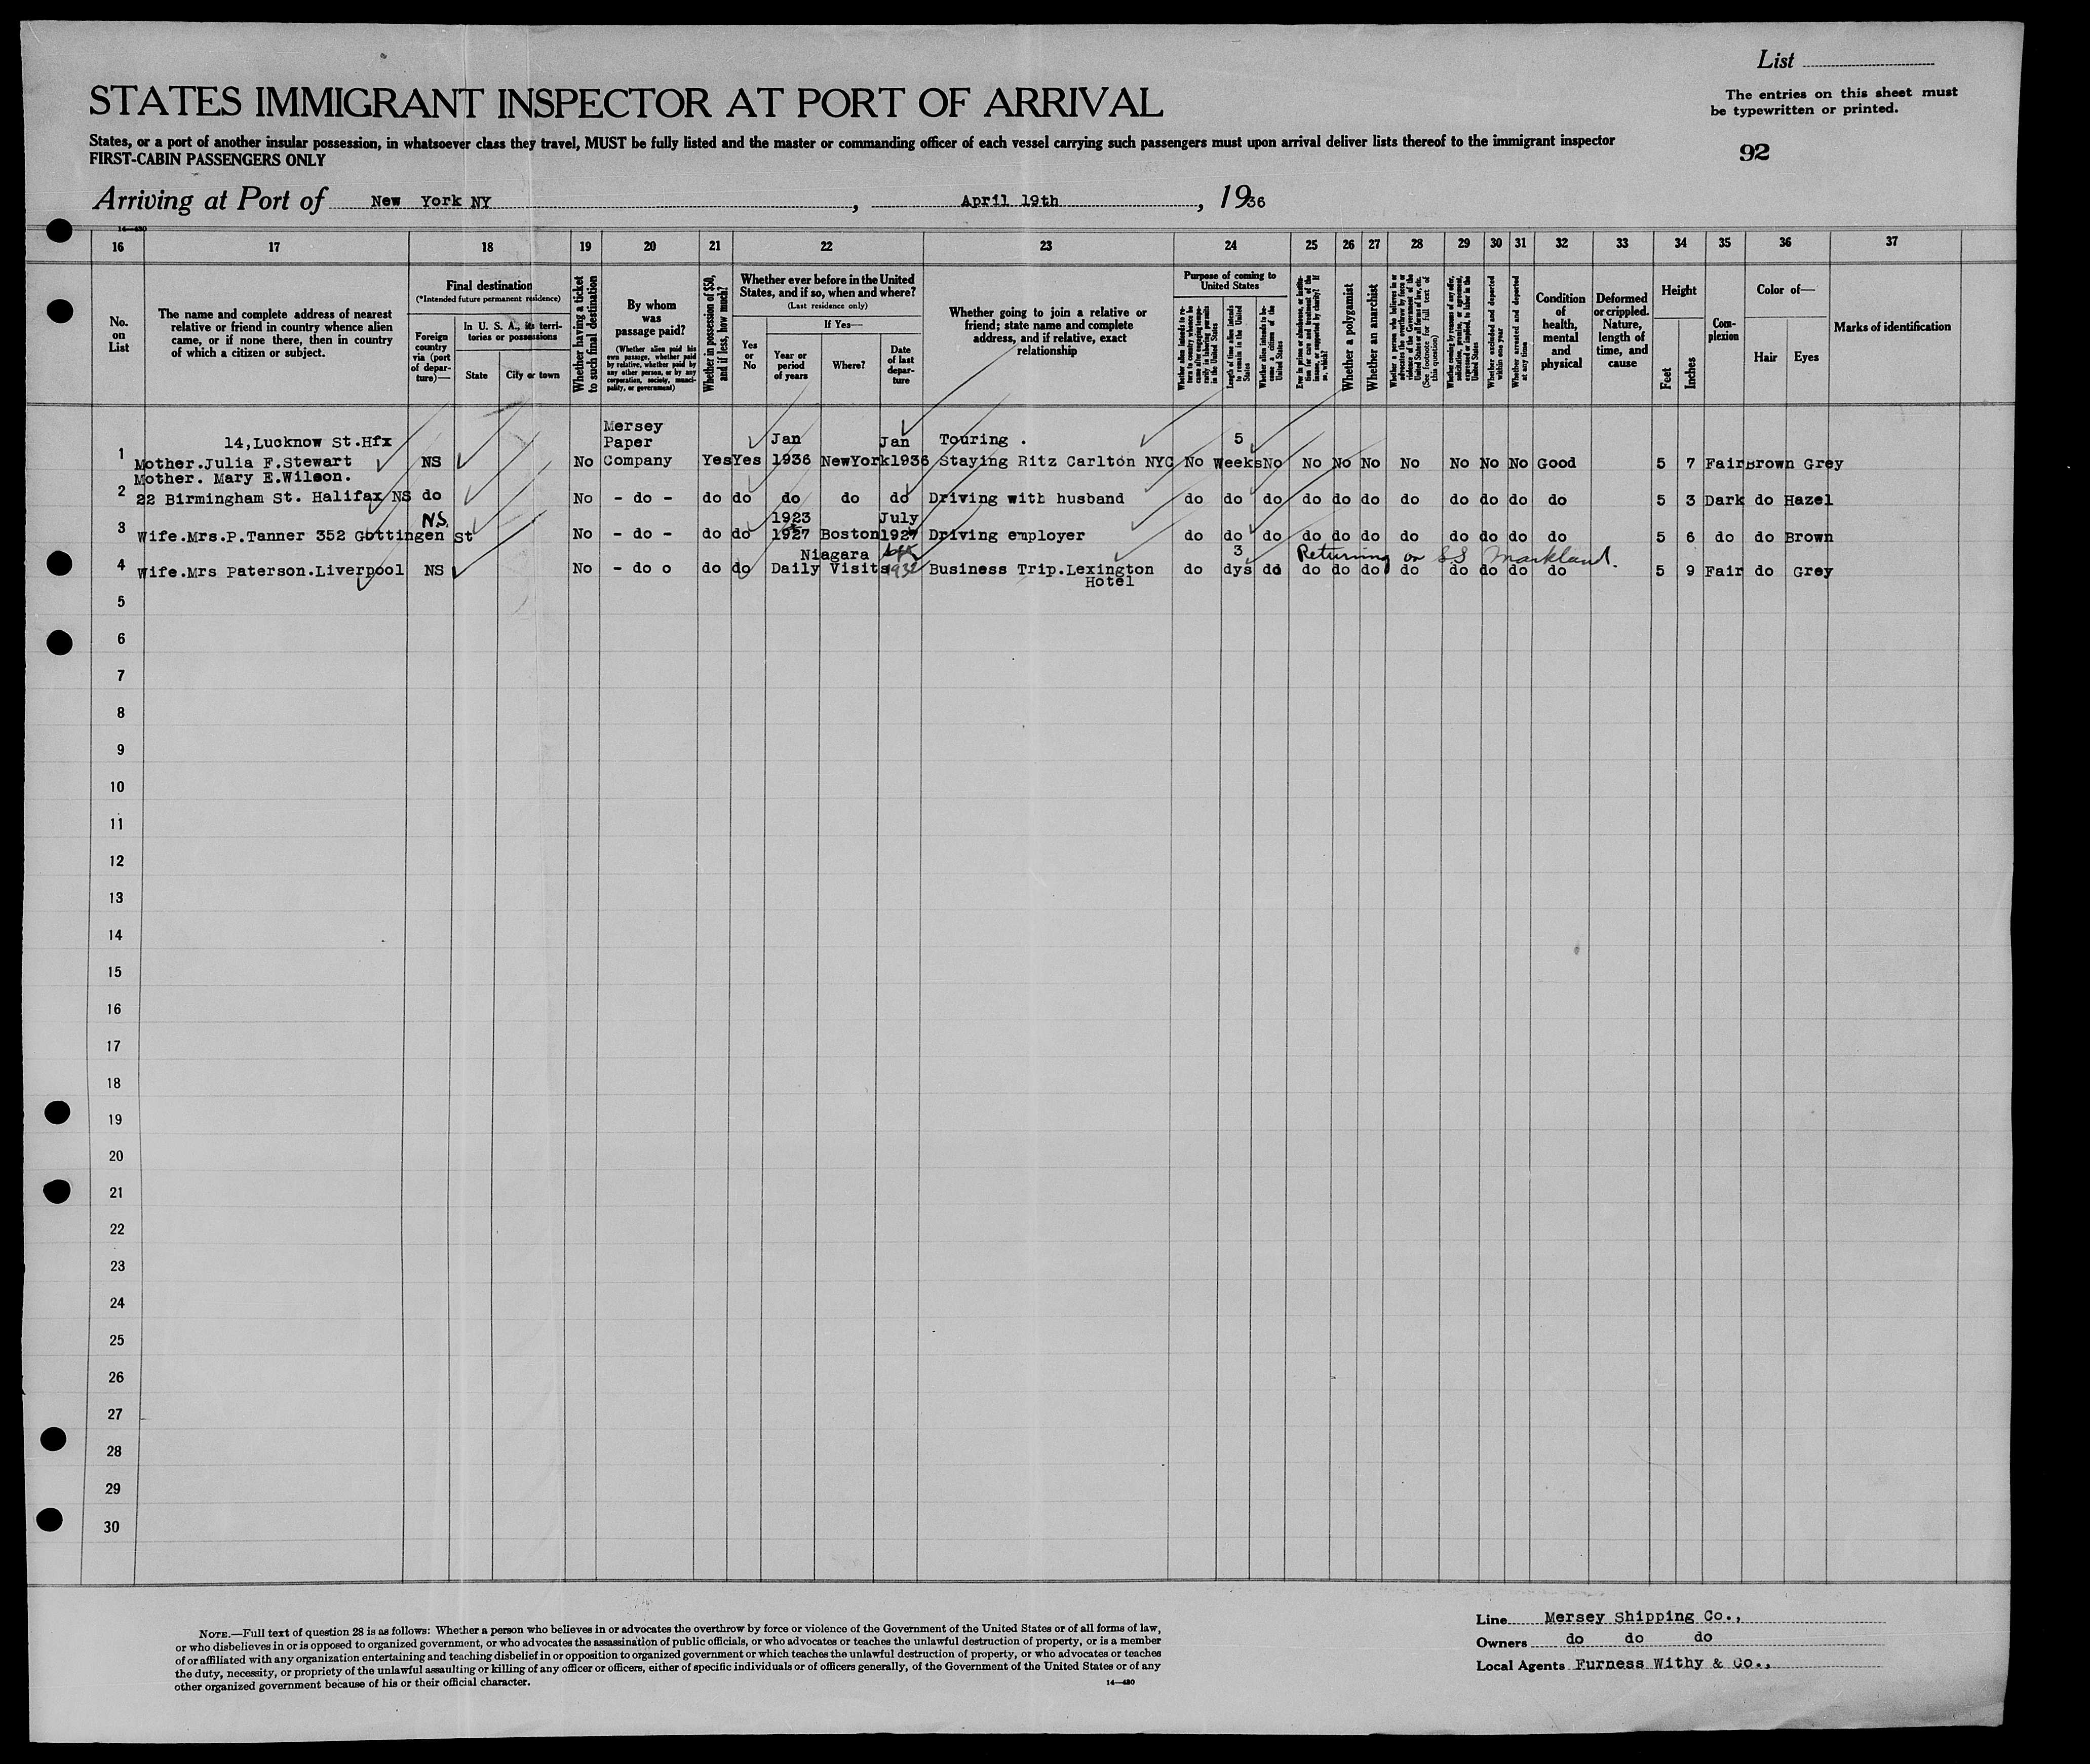 List
STATES IMMIGRANT INSPECTOR AT PORT OF ARRIVAL
The entries on this sheet must
be typewritten or printed.
States, or a port of another insular possession, in whatsoever class they travel, MUST be fully listed and the master or commanding officer of each vessel carrying such passengers must upon arrival deliver lists thereof to the immigrant inspector
FIRST-CABIN PASSENGERS ONLY
92
Arriving at Port of New York NY, April 19th, 1936
14—480
16 17 18 19 20 21 22 23 24 25 26 27 28 29 30 31 32 33 34 35 36 37
No.
on
List
The name and complete address of nearest
relative or friend in country whence alien
came, or if none there, then in country
of which a citizen or subject.
Final destination
(*Intended future permanent residence)
Foreign
country
via (port
of depar-
ture)—
In U. S. A., its terri-
tories or possessions
State
City or town
Whether having a ticket
to such final destination
By whom
was
passage paid?
(Whether alien paid his
own passage, whether paid
by relative, whether paid by
any other person, or by any
corporation, society, munici-
pality, or government)
Whether in possession of $50,
and if less, how much?
Whether ever before in the United
States, and if so, when and where?
(Last residence only)
Yes
or
No
If Yes—
Year or
period
of years
Where?
Date
of last
depar-
ture
Whether going to join a relative or
friend; state name and complete
address, and if relative, exact
relationship
Purpose of coming to
United States
Whether alien intends to re-
turn to country whence he
came after engaging tempo-
rarily in laboring pursuits
in the United States
Length of time alien intends
to remain in the United
States
Whether alien intends to be-
come a citizen of the
United States
Ever in prison or almshouse, or institu-
tion for care and treatment of the
insane, or supported by charity? If
so, which?
Whether a polygamist
Whether an anarchist
Whether a person who believes in or
advocates the overthrow by force or
violence of the Government of the
United States or all forms of law, etc.
(See footnote for full text of
this question)
Whether coming by reasons of any offer,
solicitation, promise, or agreement,
expressed or implied, to labor in the
United States
Whether excluded and deported
within one year
Whether arrested and deported
at any time
Condition
of
health,
mental
and
physical
Deformed
or crippled.
Nature,
length of
time, and
cause
Height
Feet
Inches
Com-
plexion
Color of—
Hair
Eyes
Marks of identification
Mersey
14,Lucknow St.Hfx Paper Jan Jan Touring . 5
1 Mother.Julia F.Stewart NS No Company Yes Yes 1936 NewYork 1936 Staying Ritz Carlton NYC No Weeks No No No No No No No No Good 5 7 Fair Brown Grey
Mother. Mary E.Wilson.
2 22 Birmingham St. Halifax NS do No - do - do do do do do Driving with husband do do do do do do do do do do do 5 3 Dark do Hazel
NS. 1923 July
3 Wife.Mrs.P.Tanner 352 Gottingen St No - do - do do 1927 Boston 1927 Driving employer do do do do do do do do do do do 5 6 do do Brown
Niagara 3 Returning on SS Markland.
4 Wife.Mrs Paterson.Liverpool NS No - do o do do Daily Visits 1932 Business Trip.Lexington do dys do do do do do do do do do 5 9 Fair do Grey
Hotel
5
6
7
8
9
10
11
12
13
14
15
16
17
18
19
20
21
22
23
24
25
26
27
28
29
30
NOTE.—Full text of question 28 is as follows: Whether a person who believes in or advocates the overthrow by force or violence of the Government of the United States or of all forms of law,
or who disbelieves in or is opposed to organized government, or who advocates the assassination of public officials, or who advocates or teaches the unlawful destruction of property, or is a member
of or affiliated with any organization entertaining and teaching disbelief in or opposition to organized government or which teaches the unlawful destruction of property, or who advocates or teaches
the duty, necessity, or propriety of the unlawful assaulting or killing of any officer or officers, either of specific individuals or of officers generally, of the Government of the United States or of any
other organized government because of his or their official character.
14—480
Line Mersey Shipping Co.,
Owners do do do
Local Agents Furness Withy & Co.,